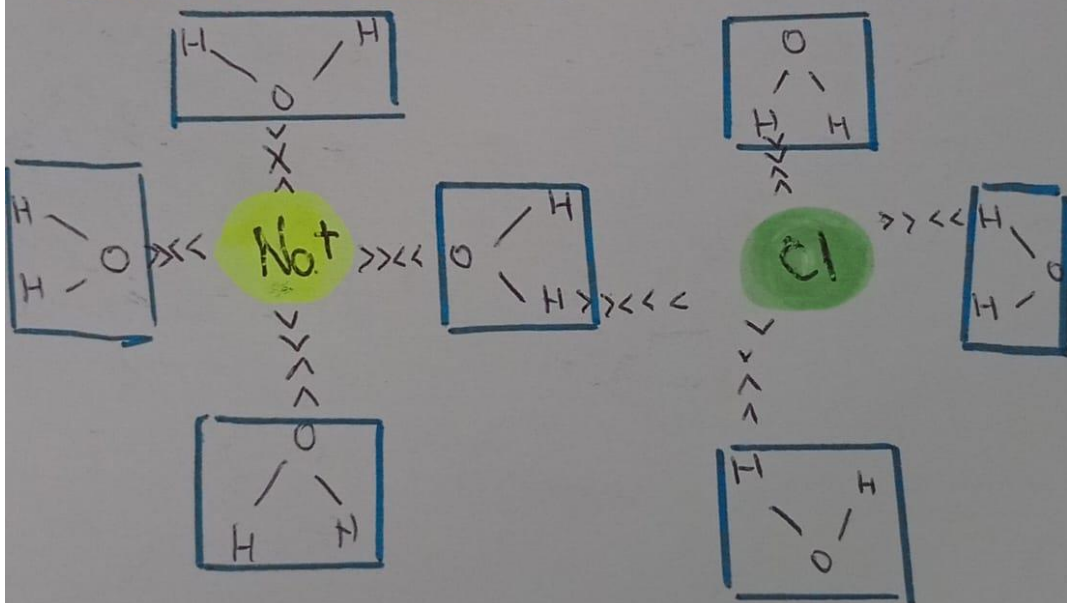 H H O
O H H
H H H
O Na+ O Cl O
H H H
O H H
H H O